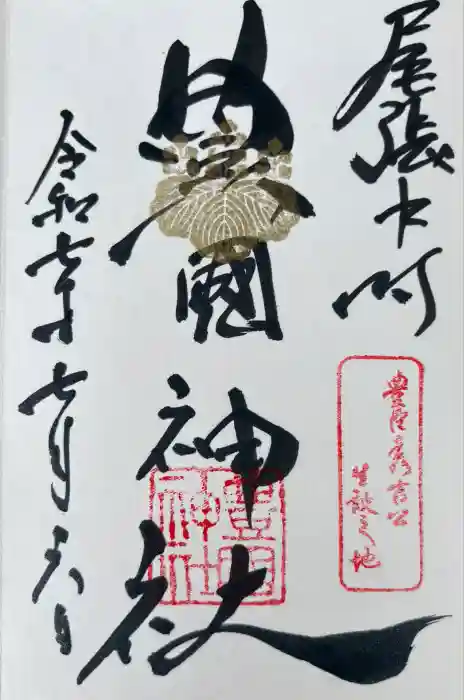 尾張中村
豊臣秀吉公
生誕之地
豊國神社
豊国
神社
令和七年七月二十六日